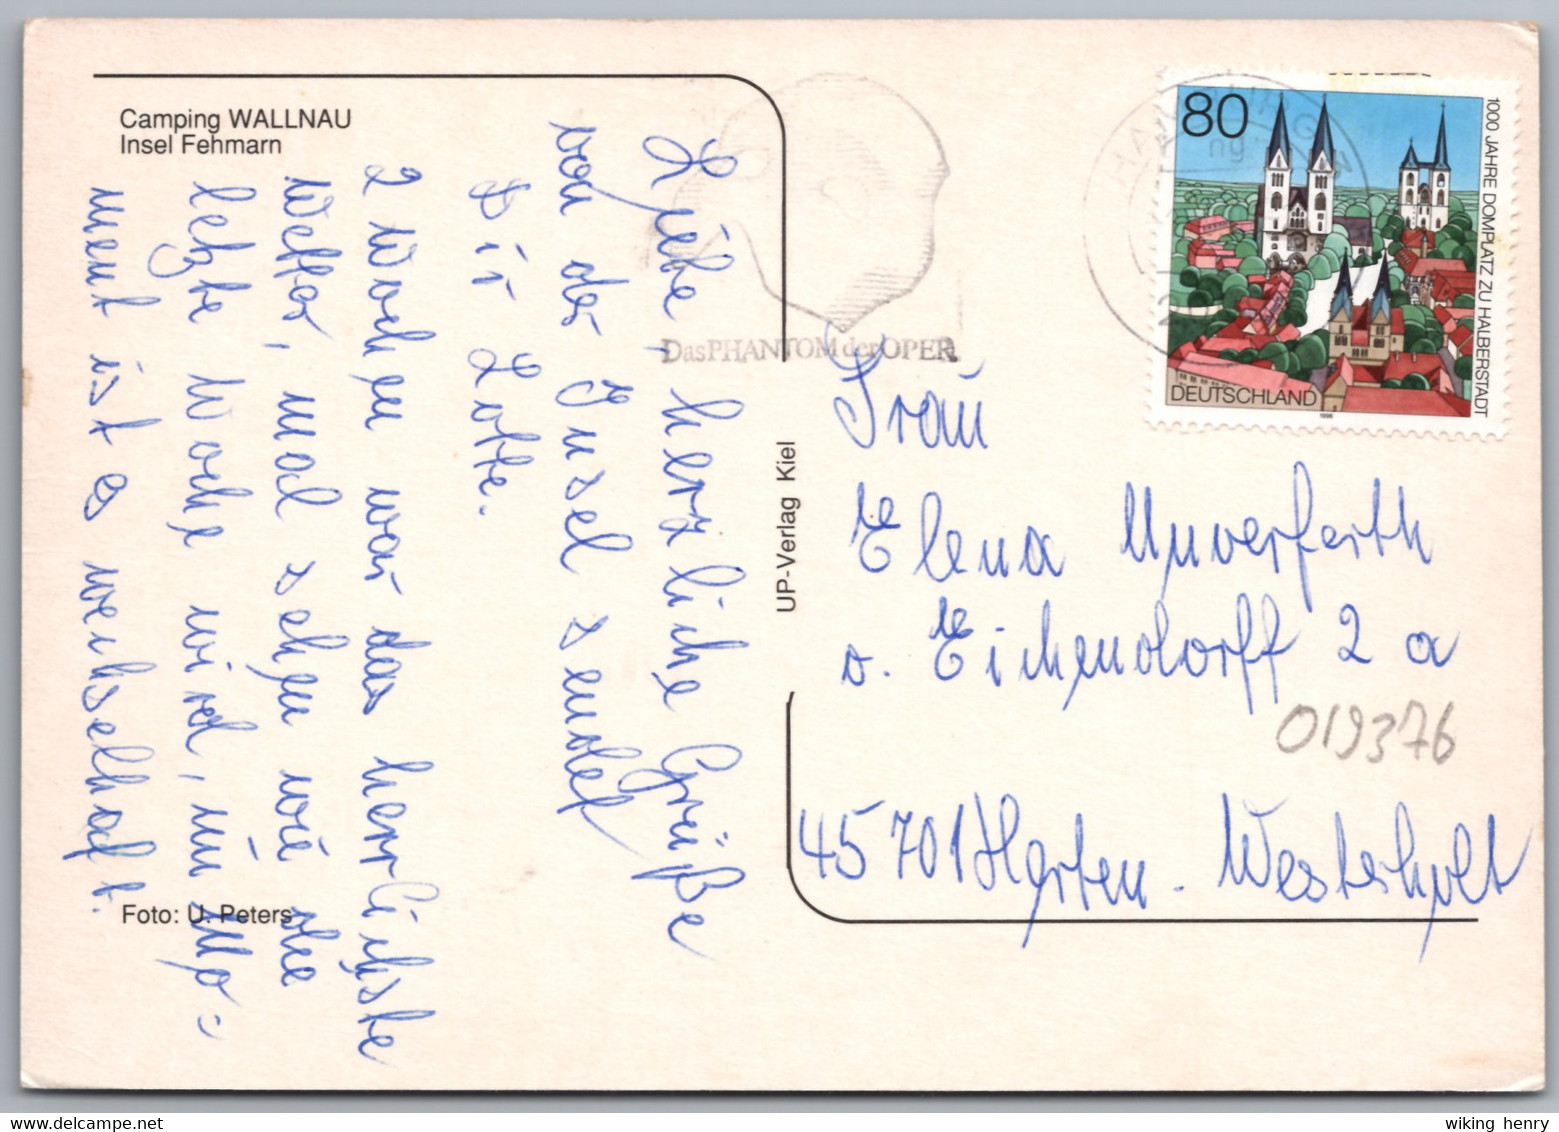 Camping WALLNAU
Insel Fehmarn
Liebe, herzliche Grüße
von der Insel sendet
Dir Lotte.
2 Wochen war das herrlichste
Wetter, mal sehen wie die
letzte Woche wird, im Mo=
ment ist es wechselhaft.
Foto: U. Peters
UP-Verlag Kiel
DasPHANTOM derOPER
HAMBURG
80
1000 JAHRE DOMPLATZ ZU HALBERSTADT
DEUTSCHLAND
1996
Frau
Elena Unverferth
v. Eichendorff 2 a
019376
45701 Herten - Westerholt
wiking henry